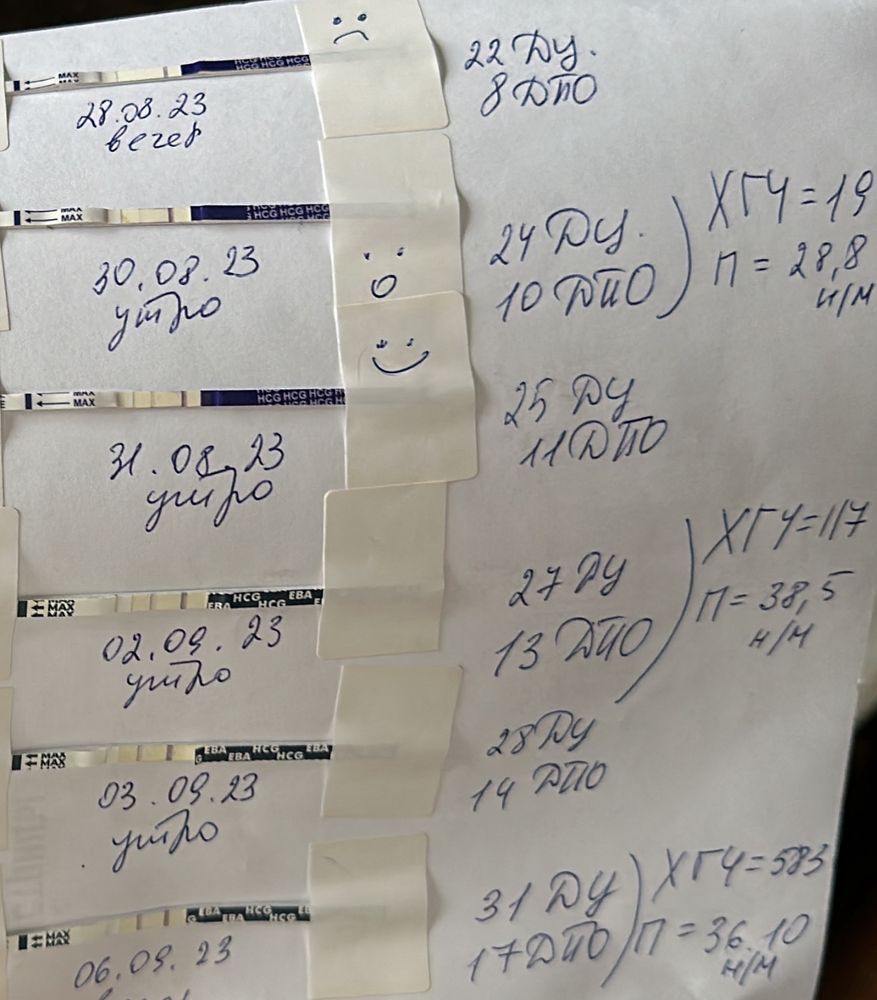 MAX
HCG HCG
HCG HCG HCG
22 ДЦ.
8 ДПО
28.08.23
вечер
MAX
MAX
HCG HCG HCG
HCG HCG HCG
24 ДЦ.
10 ДПО
ХГЧ = 19
П = 28,8
н/м
30.08.23
утро
MAX
MAX
HCG HCG HCG H
HCG HCG HCG HCG
25 ДЦ
11 ДПО
31.08.23
утро
MAX
MAX
HCG EBA
EBA HCG E
27 ДЦ
13 ДПО
ХГЧ = 117
П = 38,5
н/м
02.09.23
утро
MAX
MAX
EBA HCG EBA
G EBA HCG
28 ДЦ
14 ДПО
03.09.23
утро
MAX
MAX
EBA HCG E
G EBA HCG
31 ДЦ
17 ДПО
ХГЧ = 583
П = 36.10
н/м
06.09.23